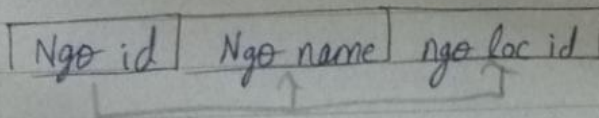 Ngo id Ngo name ngo loc id